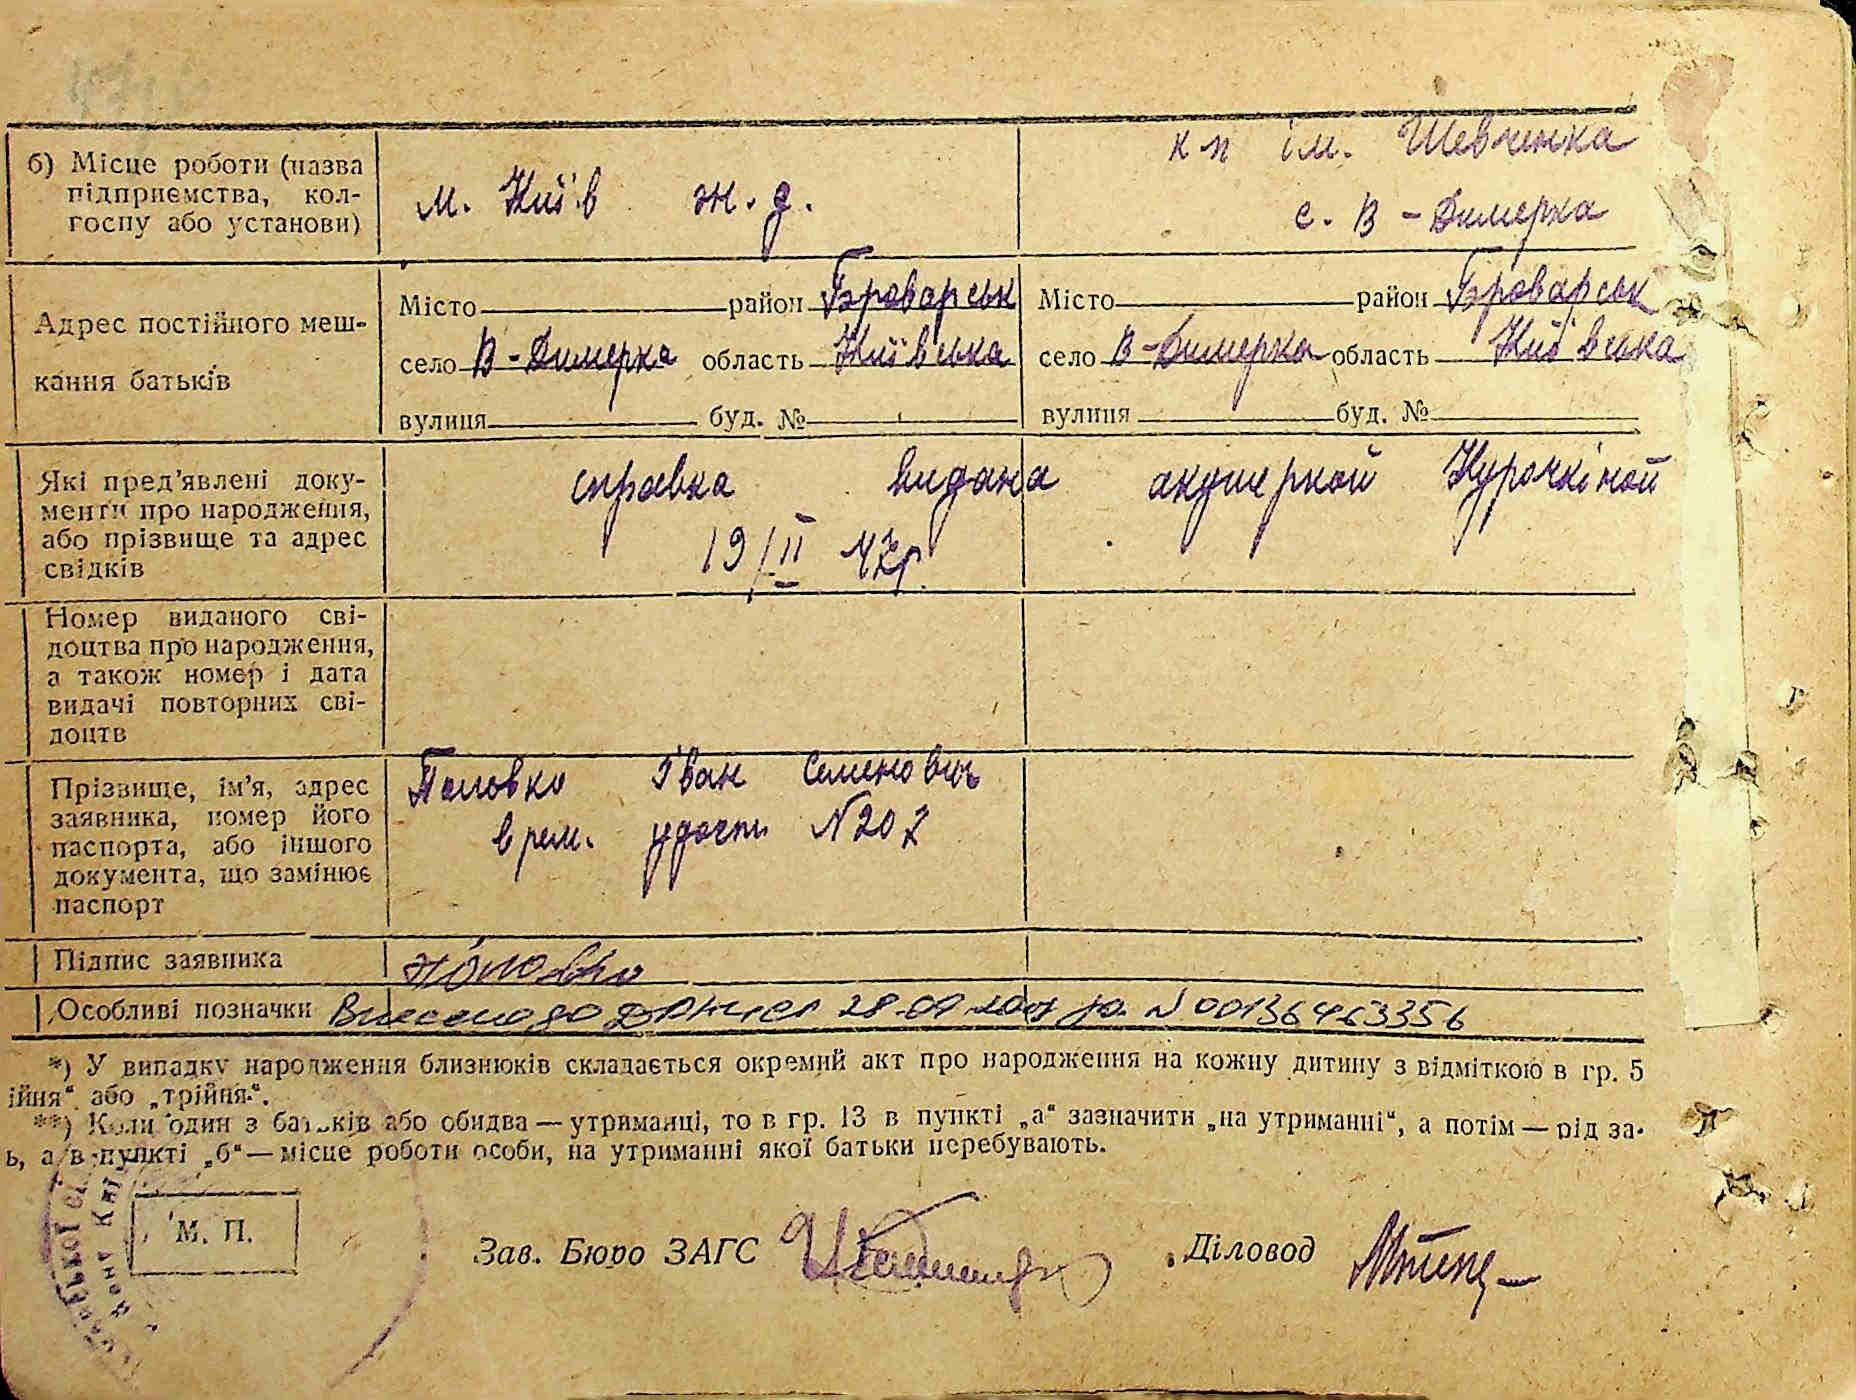 б) Місце роботи (назва
підприємства, кол-
госпу або установи)
м. Київ ж. д.
к п ім. Шевченка
с. В-Димерка
Адрес постійного меш-
кання батьків
Місто район Броварськ
село В-Димерка область Київська
вулиця буд. №
Місто район Броварськ
село В-Димерка область Київська
вулиця буд. №
Які пред'явлені доку-
менти про народження,
або прізвище та адрес
свідків
справка видана акушеркой Курочкіной
19/II 47р.
Номер виданого сві-
доцтва про народження,
а також номер і дата
видачі повторних сві-
доцтв
Прізвище, ім'я, адрес
заявника, номер його
паспорта, або іншого
документа, що замінює
паспорт
Іван Семенович
врем. удост. N 207
Підпис заявника
Особливі позначки Внесено до ДРАЦСГ 28.09. N 00136463356
*) У випадку народження близнюків складається окремий акт про народження на кожну дитину з відміткою в гр. 5
ійня" або „трійня".
**) Коли один з батьків або обидва — утриманці, то в гр. 13 в пункті „а" зазначити „на утриманні", а потім — рід за-
ь, а в пункті „б" — місце роботи особи, на утриманні якої батьки перебувають.
М. П.
Зав. Бюро ЗАГС
Діловод